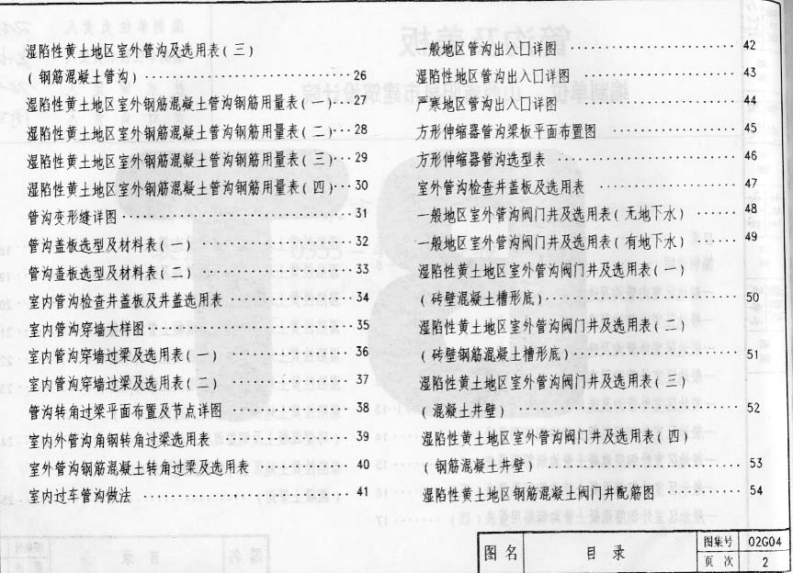 湿陷性黄土地区室外管沟及选用表(三)
(钢筋混凝土管沟) 26
湿陷性黄土地区室外钢筋混凝土管沟钢筋用量表(一) 27
湿陷性黄土地区室外钢筋混凝土管沟钢筋用量表(二) 28
湿陷性黄土地区室外钢筋混凝土管沟钢筋用量表(三) 29
湿陷性黄土地区室外钢筋混凝土管沟钢筋用量表(四) 30
管沟变形缝详图 31
管沟盖板选型及材料表(一) 32
管沟盖板选型及材料表(二) 33
室内管沟检查井盖板及井盖选用表 34
室内管沟穿墙大样图 35
室内管沟穿墙过梁及选用表(一) 36
室内管沟穿墙过梁及选用表(二) 37
管沟转角过梁平面布置及节点详图 38
室内外管沟角钢转角过梁选用表 39
室外管沟钢筋混凝土转角过梁及选用表 40
室内过车管沟做法 41
一般地区管沟出入口详图 42
湿陷性地区管沟出入口详图 43
严寒地区管沟出入口详图 44
方形伸缩器管沟梁板平面布置图 45
方形伸缩器管沟选型表 46
室外管沟检查井盖板及选用表 47
一般地区室外管沟阀门井及选用表(无地下水) 48
一般地区室外管沟阀门井及选用表(有地下水) 49
湿陷性黄土地区室外管沟阀门井及选用表(一)
(砖壁混凝土槽形底) 50
湿陷性黄土地区室外管沟阀门井及选用表(二)
(砖壁钢筋混凝土槽形底) 51
湿陷性黄土地区室外管沟阀门井及选用表(三)
(混凝土井壁) 52
湿陷性黄土地区室外管沟阀门井及选用表(四)
(钢筋混凝土井壁) 53
湿陷性黄土地区钢筋混凝土阀门井配筋图 54
图名 目录 图集号 02G04
页次 2